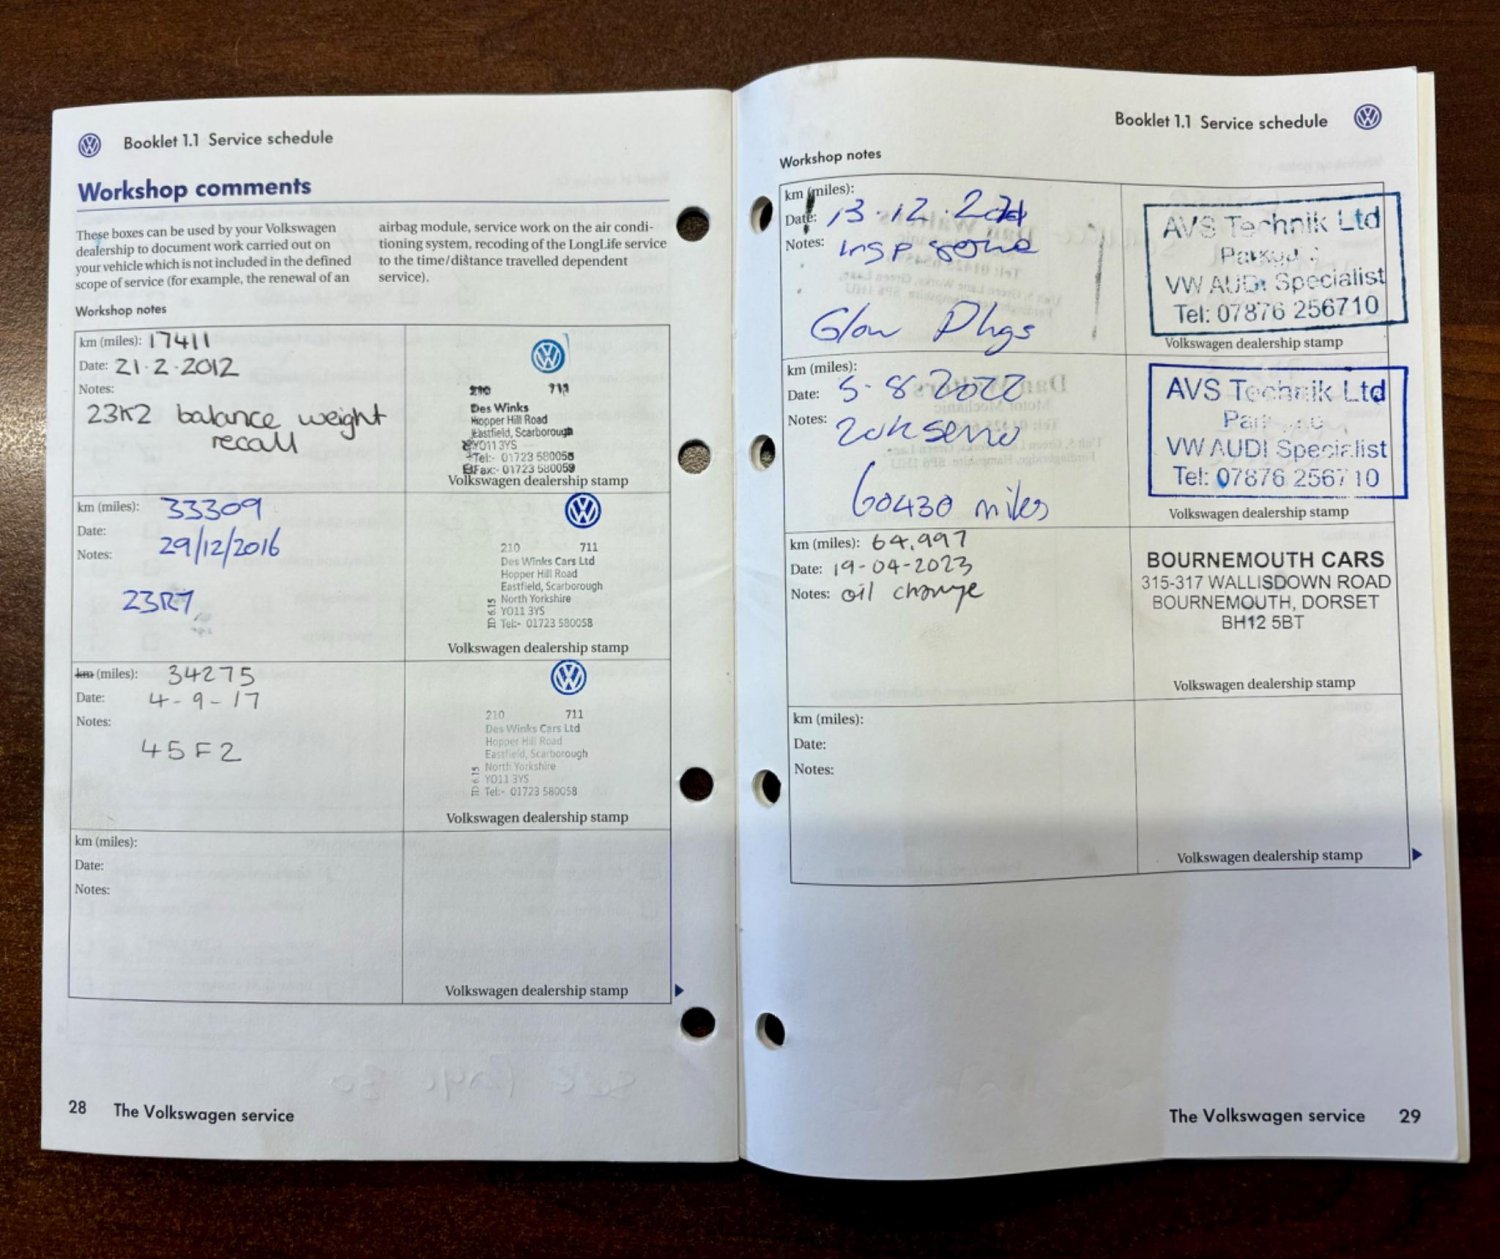 Booklet 1.1 Service schedule
Workshop comments
These boxes can be used by your Volkswagen
dealership to document work carried out on
your vehicle which is not included in the defined
scope of service (for example, the renewal of an
airbag module, service work on the air condi-
tioning system, recoding of the LongLife service
to the time/distance travelled dependent
service).
Workshop notes
km (miles): 17411
Date: 21·2·2012
Notes:
23K2 balance weight
recall
210 711
Des Winks
Hopper Hill Road
Eastfield, Scarborough
YO11 3YS
Tel:- 01723 580058
Fax:- 01723 580059
Volkswagen dealership stamp
km (miles): 33309
Date: 29/12/2016
Notes:
23R7
210 711
Des Winks Cars Ltd
Hopper Hill Road
Eastfield, Scarborough
North Yorkshire
YO11 3YS
Tel:- 01723 580058
Volkswagen dealership stamp
km (miles): 34275
Date: 4-9-17
Notes:
45F2
210 711
Des Winks Cars Ltd
Hopper Hill Road
Eastfield, Scarborough
North Yorkshire
YO11 3YS
Tel:- 01723 580058
Volkswagen dealership stamp
km (miles):
Date:
Notes:
Volkswagen dealership stamp
28 The Volkswagen service
Booklet 1.1 Service schedule
Workshop notes
km (miles):
Date: 13·12·
Notes: Insp
Glow Plugs
AVS Technik Ltd
VW AUDI Specialist
Tel: 07876 256710
Volkswagen dealership stamp
km (miles):
Date: 5-8-2022
Notes: 20K
60430 miles
AVS Technik Ltd
VW AUDI Specialist
Tel: 07876 256710
Volkswagen dealership stamp
km (miles): 64,997
Date: 19-04-2023
Notes: oil change
BOURNEMOUTH CARS
315-317 WALLISDOWN ROAD
BOURNEMOUTH, DORSET
BH12 5BT
Volkswagen dealership stamp
km (miles):
Date:
Notes:
Volkswagen dealership stamp
The Volkswagen service 29